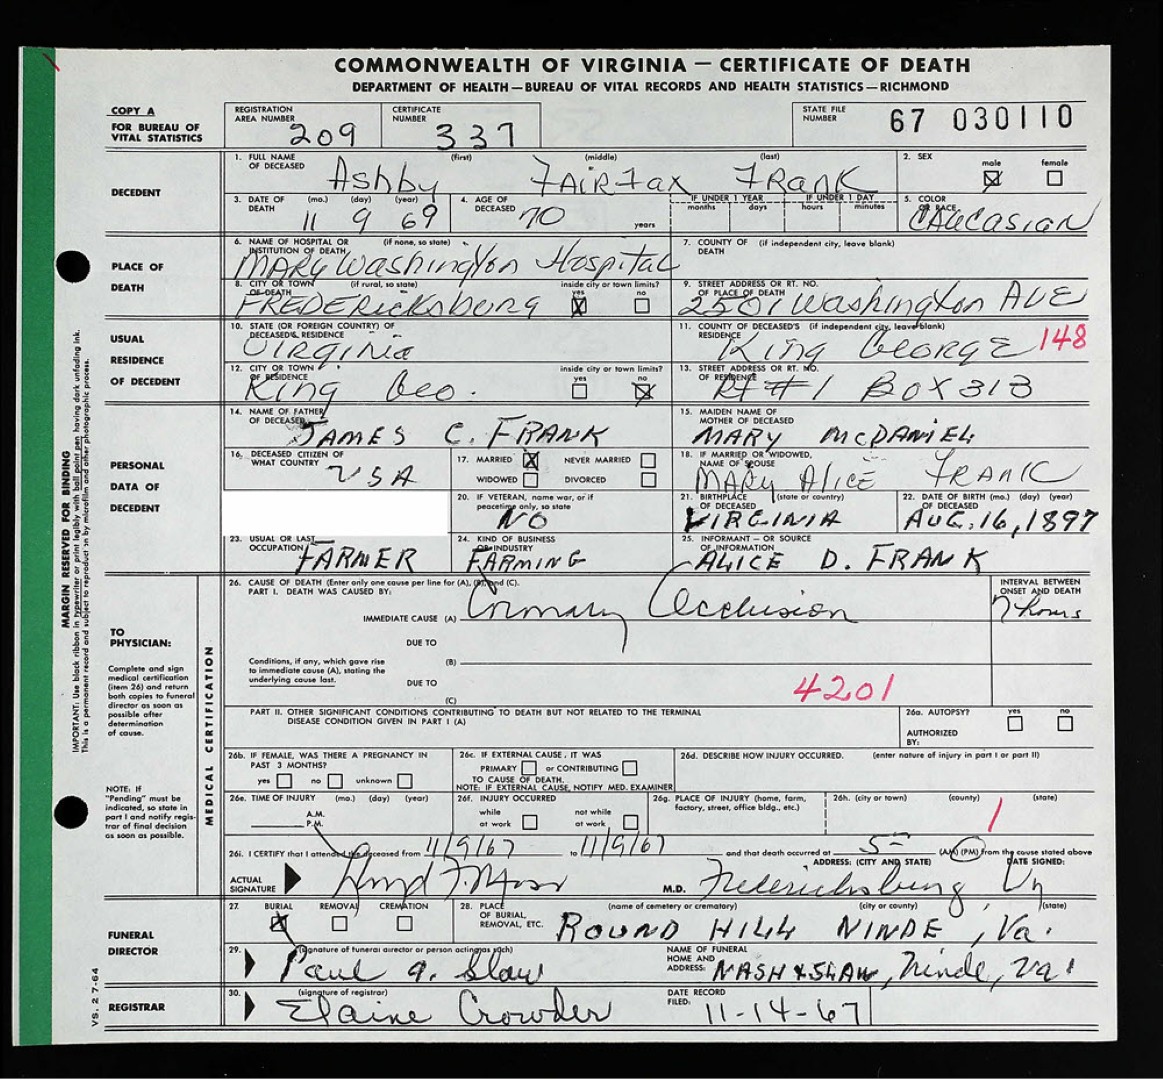 COMMONWEALTH OF VIRGINIA — CERTIFICATE OF DEATH
DEPARTMENT OF HEALTH—BUREAU OF VITAL RECORDS AND HEALTH STATISTICS—RICHMOND
COPY A
FOR BUREAU OF VITAL STATISTICS
REGISTRATION AREA NUMBER 209
CERTIFICATE NUMBER 337
STATE FILE NUMBER 67 030110
DECEDENT
1. FULL NAME OF DECEASED (first) (middle) (last)
Ashby FAIRFAX FRANK
2. SEX male ☒ female ☐
3. DATE OF DEATH (mo.) (day) (year)
11 9 69
4. AGE OF DECEASED 70 years
IF UNDER 1 YEAR months days
IF UNDER 1 DAY hours minutes
5. COLOR OR RACE CAUCASIAN
PLACE OF DEATH
6. NAME OF HOSPITAL OR INSTITUTION OF DEATH (if none, so state)
MARY Washington Hospital
7. COUNTY OF DEATH (if independent city, leave blank)
8. CITY OR TOWN OF DEATH (if rural, so state) inside city or town limits? yes ☒ no ☐
FREDERicksburg
9. STREET ADDRESS OR RT. NO. OF PLACE OF DEATH
2501 Washington AVE
USUAL RESIDENCE OF DECEDENT
10. STATE (OR FOREIGN COUNTRY) OF DECEASED'S RESIDENCE
Virginia
11. COUNTY OF DECEASED'S RESIDENCE (if independent city, leave blank)
King GEORGE 148
12. CITY OR TOWN OF RESIDENCE inside city or town limits? yes ☐ no ☒
King Geo.
13. STREET ADDRESS OR RT. NO. OF RESIDENCE
Rt #1 BOX 313
PERSONAL DATA OF DECEDENT
14. NAME OF FATHER OF DECEASED
JAMES C. FRANK
15. MAIDEN NAME OF MOTHER OF DECEASED
MARY McDANIEL
16. DECEASED CITIZEN OF WHAT COUNTRY
USA
17. MARRIED ☒ NEVER MARRIED ☐
WIDOWED ☐ DIVORCED ☐
18. IF MARRIED OR WIDOWED, NAME OF SPOUSE
MARY Alice FRANK
20. IF VETERAN, name war, or if peacetime only, so state
NO
21. BIRTHPLACE OF DECEASED (state or country)
VIRGINIA
22. DATE OF BIRTH OF DECEASED (mo.) (day) (year)
AUG. 16, 1897
23. USUAL OR LAST OCCUPATION
FARMER
24. KIND OF BUSINESS OR INDUSTRY
FARMING
25. INFORMANT – OR SOURCE OF INFORMATION
ALICE D. FRANK
MARGIN RESERVED FOR BINDING
IMPORTANT: Use black ribbon in typewriter or print legibly with ball point pen having dark unfading ink.
This is a permanent record and subject to reproduction by microfilm and other photographic process.
TO PHYSICIAN:
Complete and sign medical certification (item 26) and return both copies to funeral director as soon as possible after determination of cause.
NOTE: If "Pending" must be indicated, so state in part I and notify registrar of final decision as soon as possible.
MEDICAL CERTIFICATION
26. CAUSE OF DEATH (Enter only one cause per line for (A), (B), and (C).
PART I. DEATH WAS CAUSED BY:
INTERVAL BETWEEN ONSET AND DEATH
IMMEDIATE CAUSE (A) Coronary Occlusion 7 hours
DUE TO
Conditions, if any, which gave rise to immediate cause (A), stating the underlying cause last.
(B)
DUE TO
(C)
4201
PART II. OTHER SIGNIFICANT CONDITIONS CONTRIBUTING TO DEATH BUT NOT RELATED TO THE TERMINAL DISEASE CONDITION GIVEN IN PART I (A)
26a. AUTOPSY? yes ☐ no ☐
AUTHORIZED BY:
26b. IF FEMALE, WAS THERE A PREGNANCY IN PAST 3 MONTHS?
yes ☐ no ☐ unknown ☐
26c. IF EXTERNAL CAUSE, IT WAS
PRIMARY ☐ or CONTRIBUTING ☐
TO CAUSE OF DEATH.
NOTE: IF EXTERNAL CAUSE, NOTIFY MED. EXAMINER
26d. DESCRIBE HOW INJURY OCCURRED. (enter nature of injury in part I or part II)
26e. TIME OF INJURY (mo.) (day) (year)
A.M.
P.M.
26f. INJURY OCCURRED
while at work ☐ not while at work ☐
26g. PLACE OF INJURY (home, farm, factory, street, office bldg., etc.)
26h. (city or town) (county) (state)
1
26i. I CERTIFY that I attended the deceased from 11/9/67 to 11/9/67 and that death occurred at 5 (AM) (PM) from the cause stated above
ACTUAL SIGNATURE M.D.
ADDRESS: (CITY AND STATE) DATE SIGNED:
Fredericksburg, Va
FUNERAL DIRECTOR
27. BURIAL ☒ REMOVAL ☐ CREMATION ☐
28. PLACE OF BURIAL, REMOVAL, ETC. (name of cemetery or crematory) (city or county) (state)
ROUND HILL NINDE, Va.
29. (signature of funeral director or person acting as such)
Paul A. Slaw
NAME OF FUNERAL HOME AND ADDRESS:
NASH & SLAW, Ninde, Va.
REGISTRAR
30. (signature of registrar)
Elaine Crowder
DATE RECORD FILED:
11-14-67
VS. 2 7-64